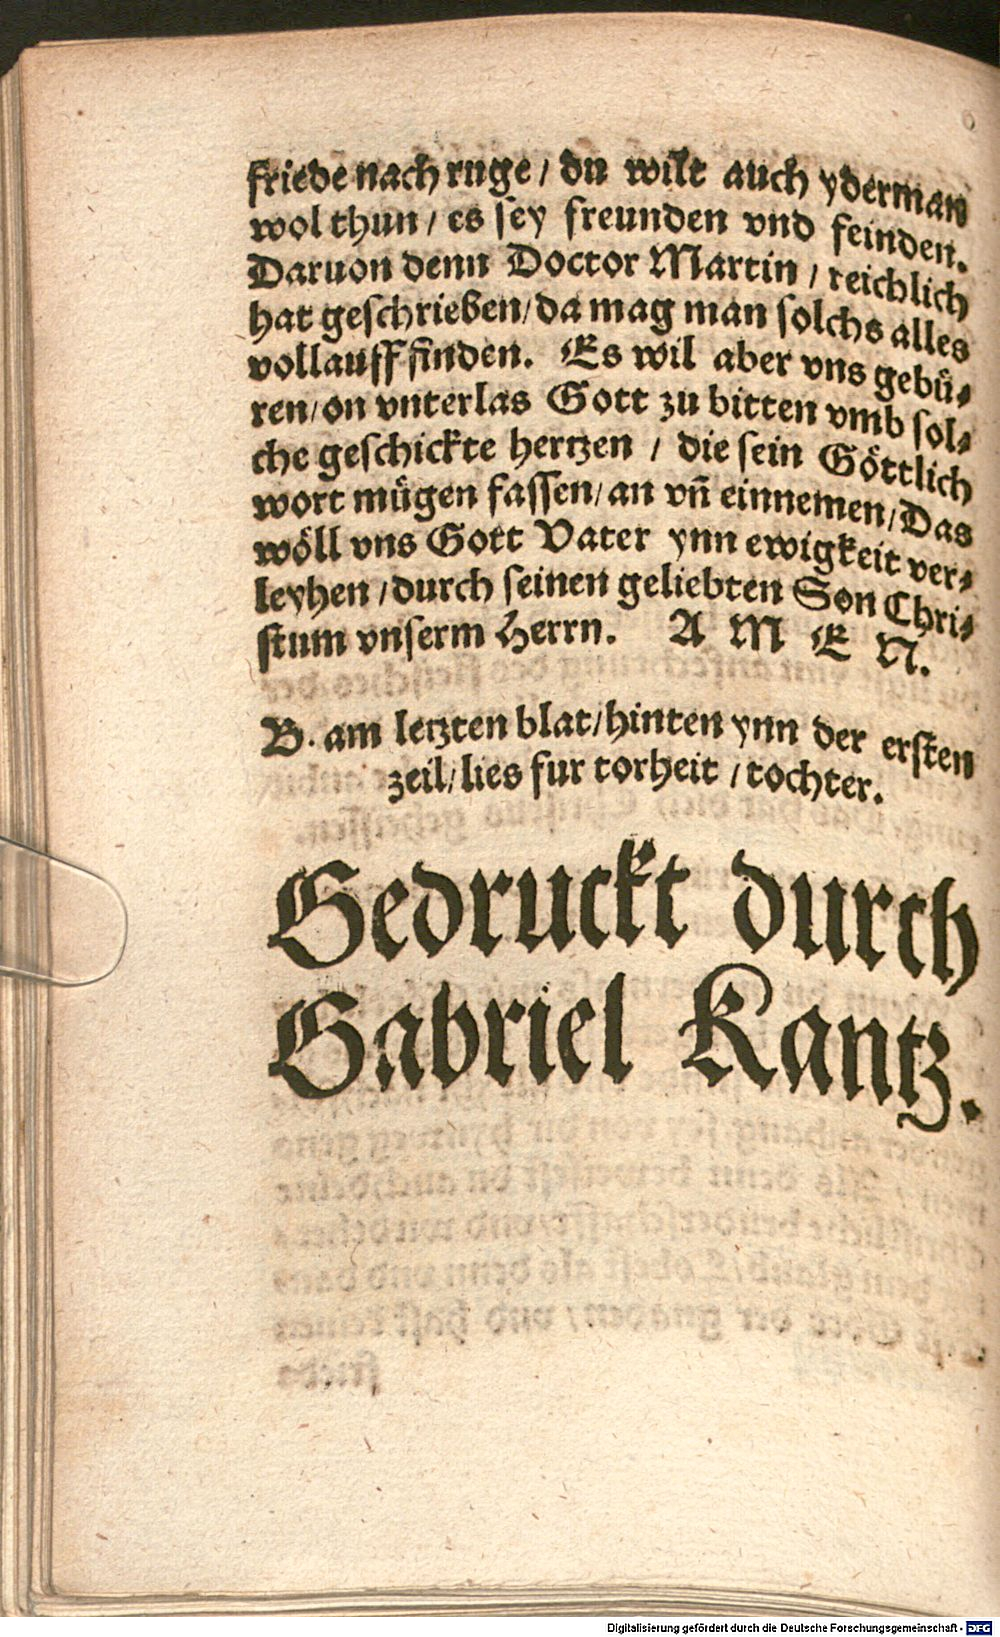 friede nach ruge / du wilt auch yderman
wol thun / es sey freunden vnd feinden.
Daruon denn Doctor Martin / reichlich
hat geschrieben / da mag man solchs alles
vollauff finden. Es wil aber vns gebü-
ren / on vnterlas Gott zu bitten vmb sol-
che geschickte hertzen / die sein Göttlich
wort mügen fassen / an vñ einnemen / Das
wöll vns Gott Vater ynn ewigkeit ver-
leyhen / durch seinen geliebten Son Chri-
stum vnserm Herrn. A M E N.
B. am letzten blat / hinten ynn der ersten
zeil / lies fur torheit / tochter.
Gedruckt durch
Gabriel Kantz.
Digitalisierung gefördert durch die Deutsche Forschungsgemeinschaft - DFG